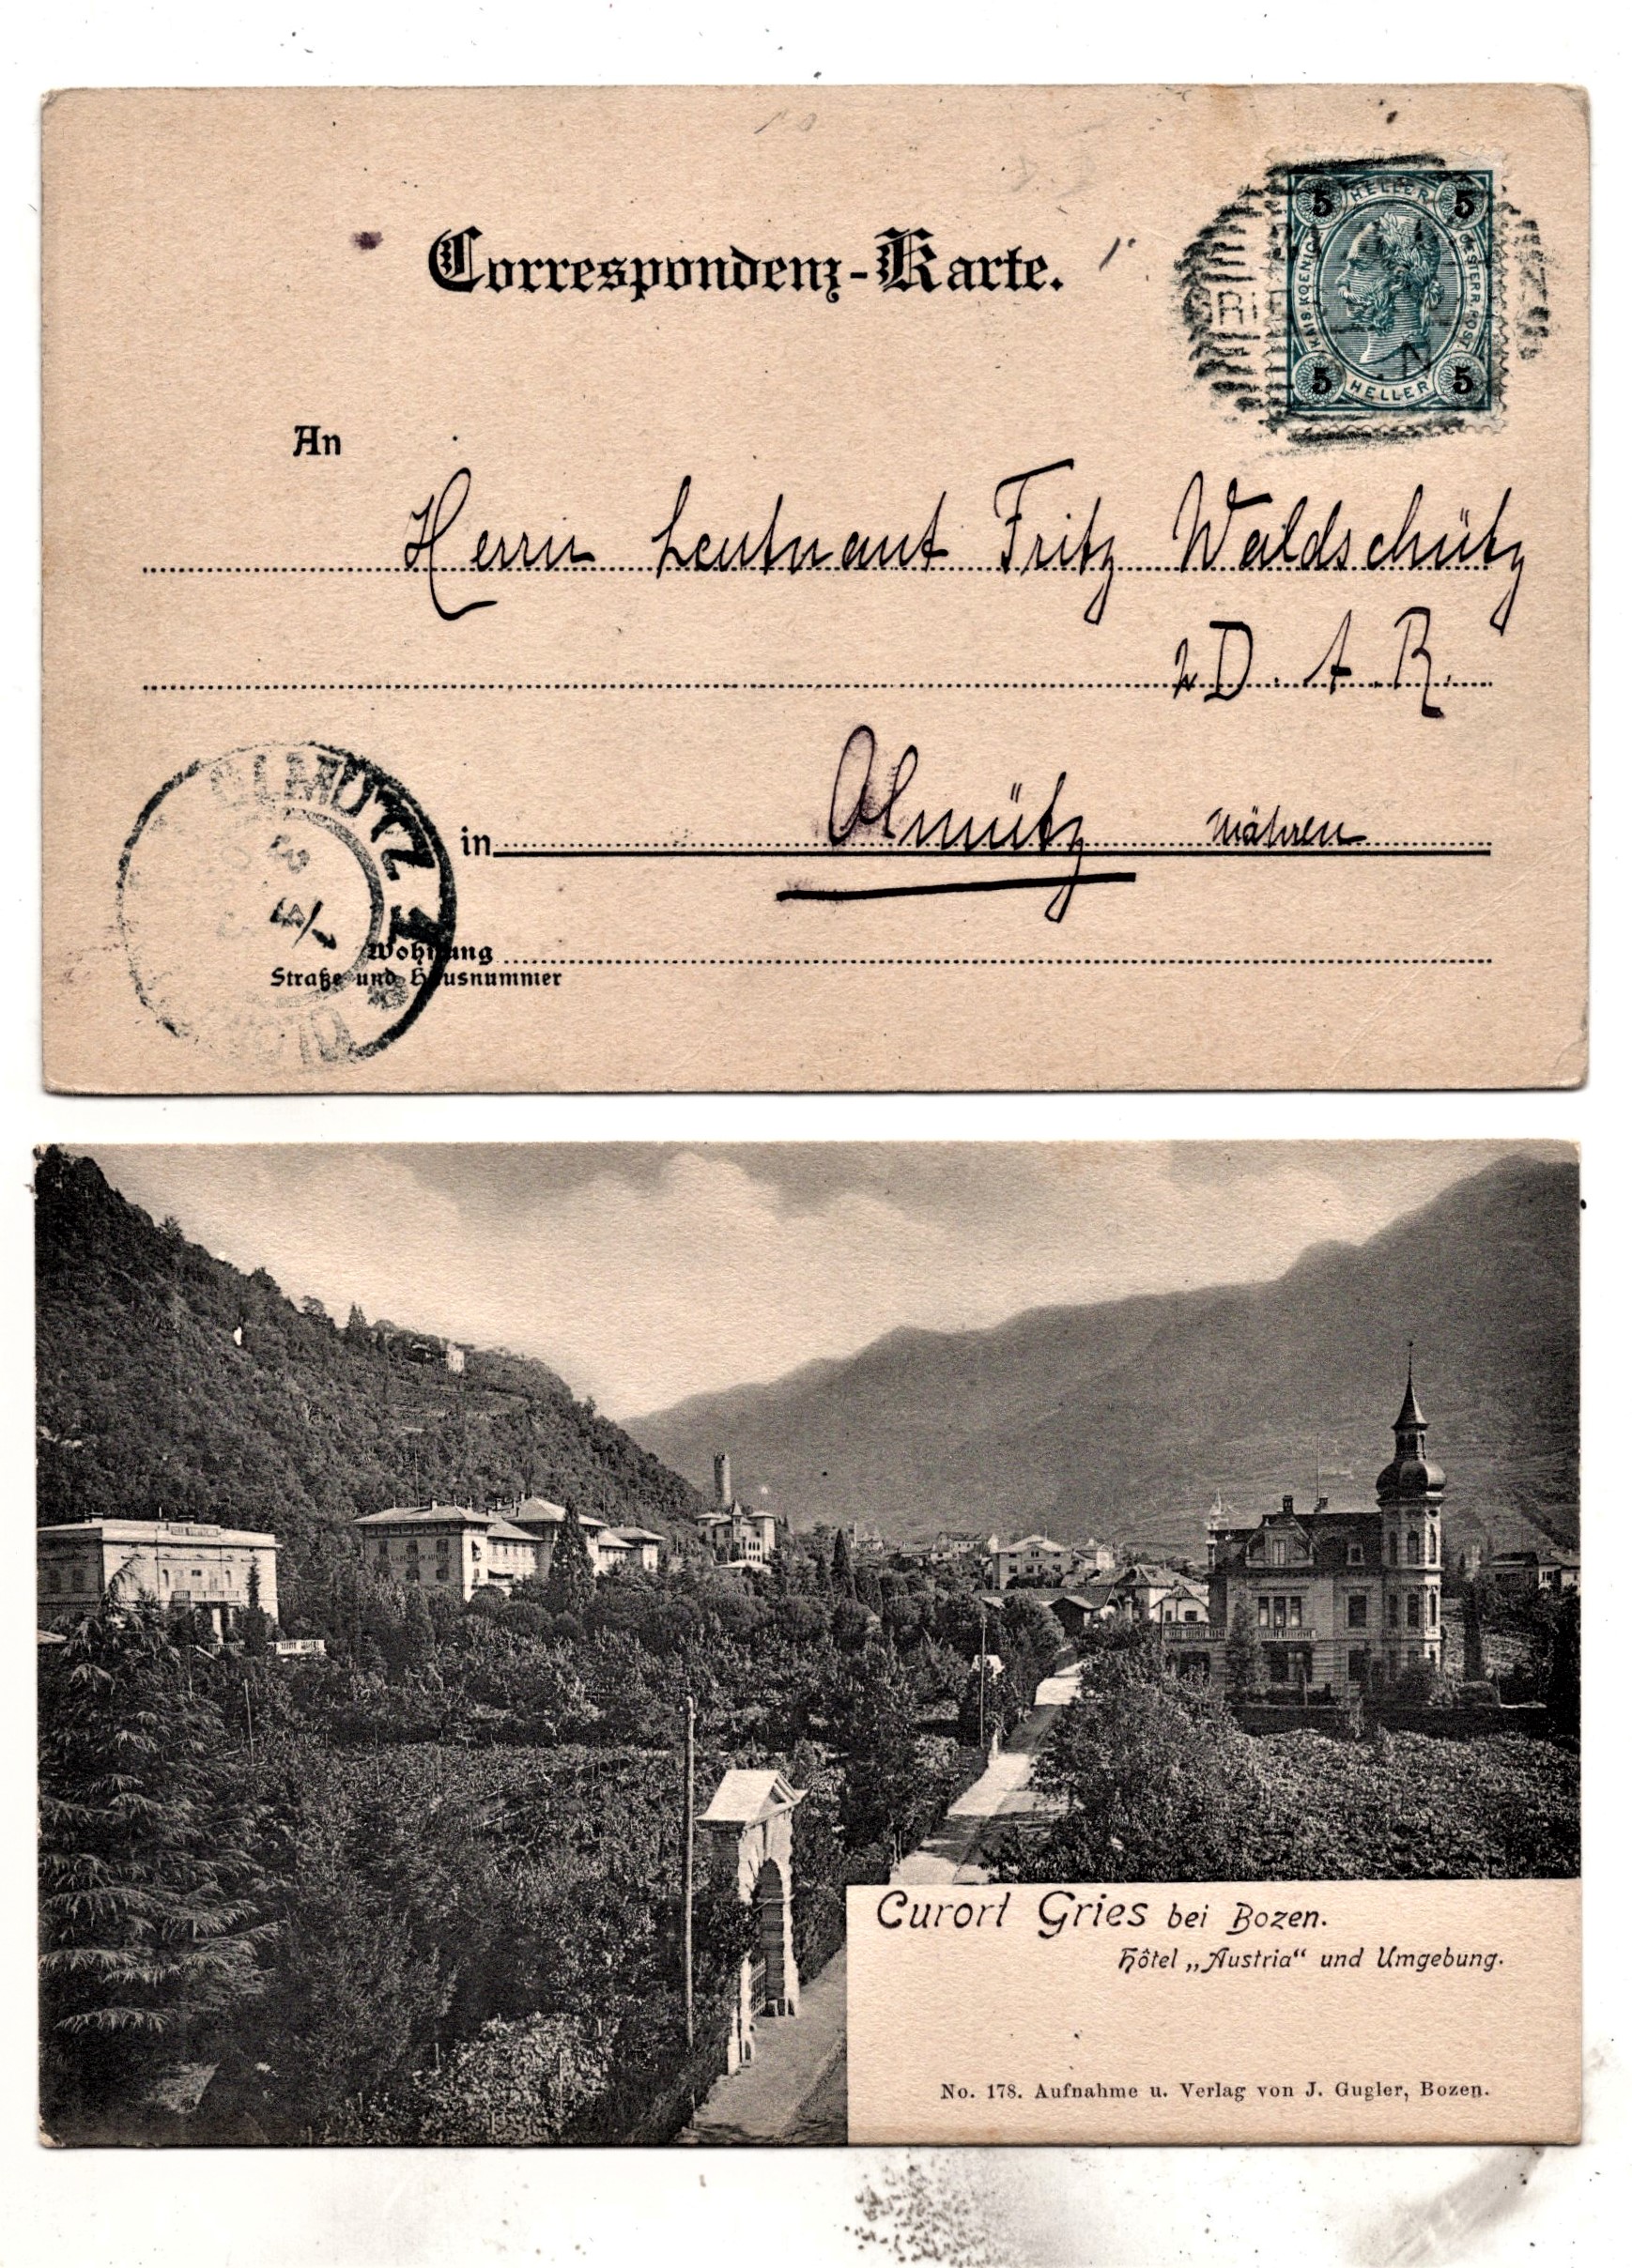 Correspondenz-Karte.
5 HELLER 5
KAIS. KOENIGL. OESTERR. POST
5 HELLER 5
GRIE
An
Herrn Leutnant Fritz Waldschütz
D. A. R.
OLMÜTZ 1
in Olmütz Mähren
Wohnung
Straße und Hausnummer
Curort Gries bei Bozen.
Hôtel „Austria“ und Umgebung.
No. 178. Aufnahme u. Verlag von J. Gugler, Bozen.